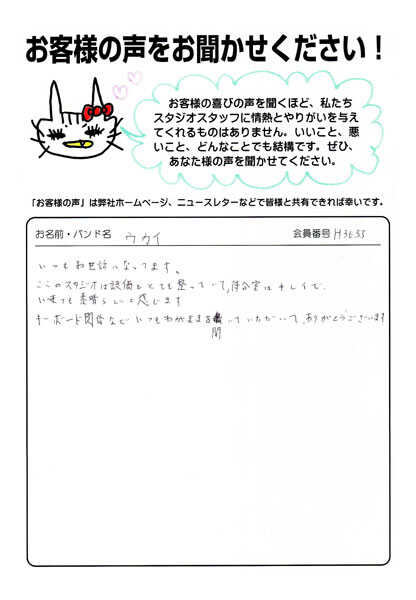 お客様の声をお聞かせください！
お客様の喜びの声を聞くほど、私たち
スタジオスタッフに情熱とやりがいを与え
てくれるものはありません。いいこと、悪
いこと、どんなことでも結構です。ぜひ、
あなた様の声を聞かせてください。
「お客様の声」は弊社ホームページ、ニュースレターなどで皆様と共有できれば幸いです。
お名前・バンド名 ウカイ 会員番号 H3635
いつもお世話になってます。
ここのスタジオは設備もとても整っていて、待合室はキレイで、
いまでも素晴らしいと感じます
キーボード関係などいつもわがままを聞いていただいて、ありがとうございます